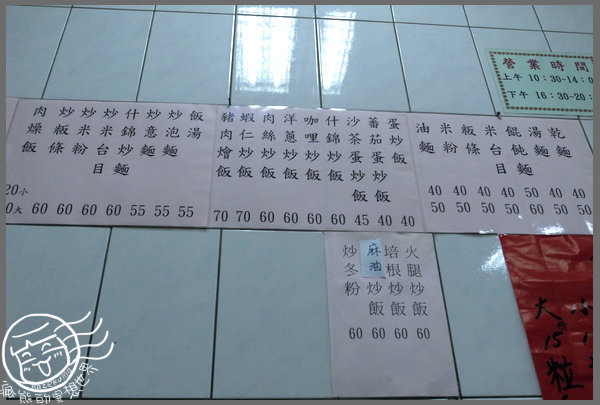 營業時間
上午 10:30-14:0
下午 16:30-20:
肉燥飯 20小 0大
炒粄條 60
炒米粉 60
炒米台目 60
什錦炒麵 60
炒意麵 55
炒泡麵 55
飯湯 55
豬肉燴飯 70
蝦仁炒飯 70
肉絲炒飯 60
洋蔥炒飯 60
咖哩炒飯 60
什錦炒飯 60
沙茶蛋炒飯 45
蕃茄蛋炒飯 40
蛋炒飯 40
油麵 40 50
米粉 40 50
粄條 40 50
米台目 40 50
餛飩麵 50 60
湯麵 40 50
乾麵 40 50
炒冬粉 60
麻油炒飯 60
培根炒飯 60
火腿炒飯 60
大 15粒
小 1
瘋熊的異想世界